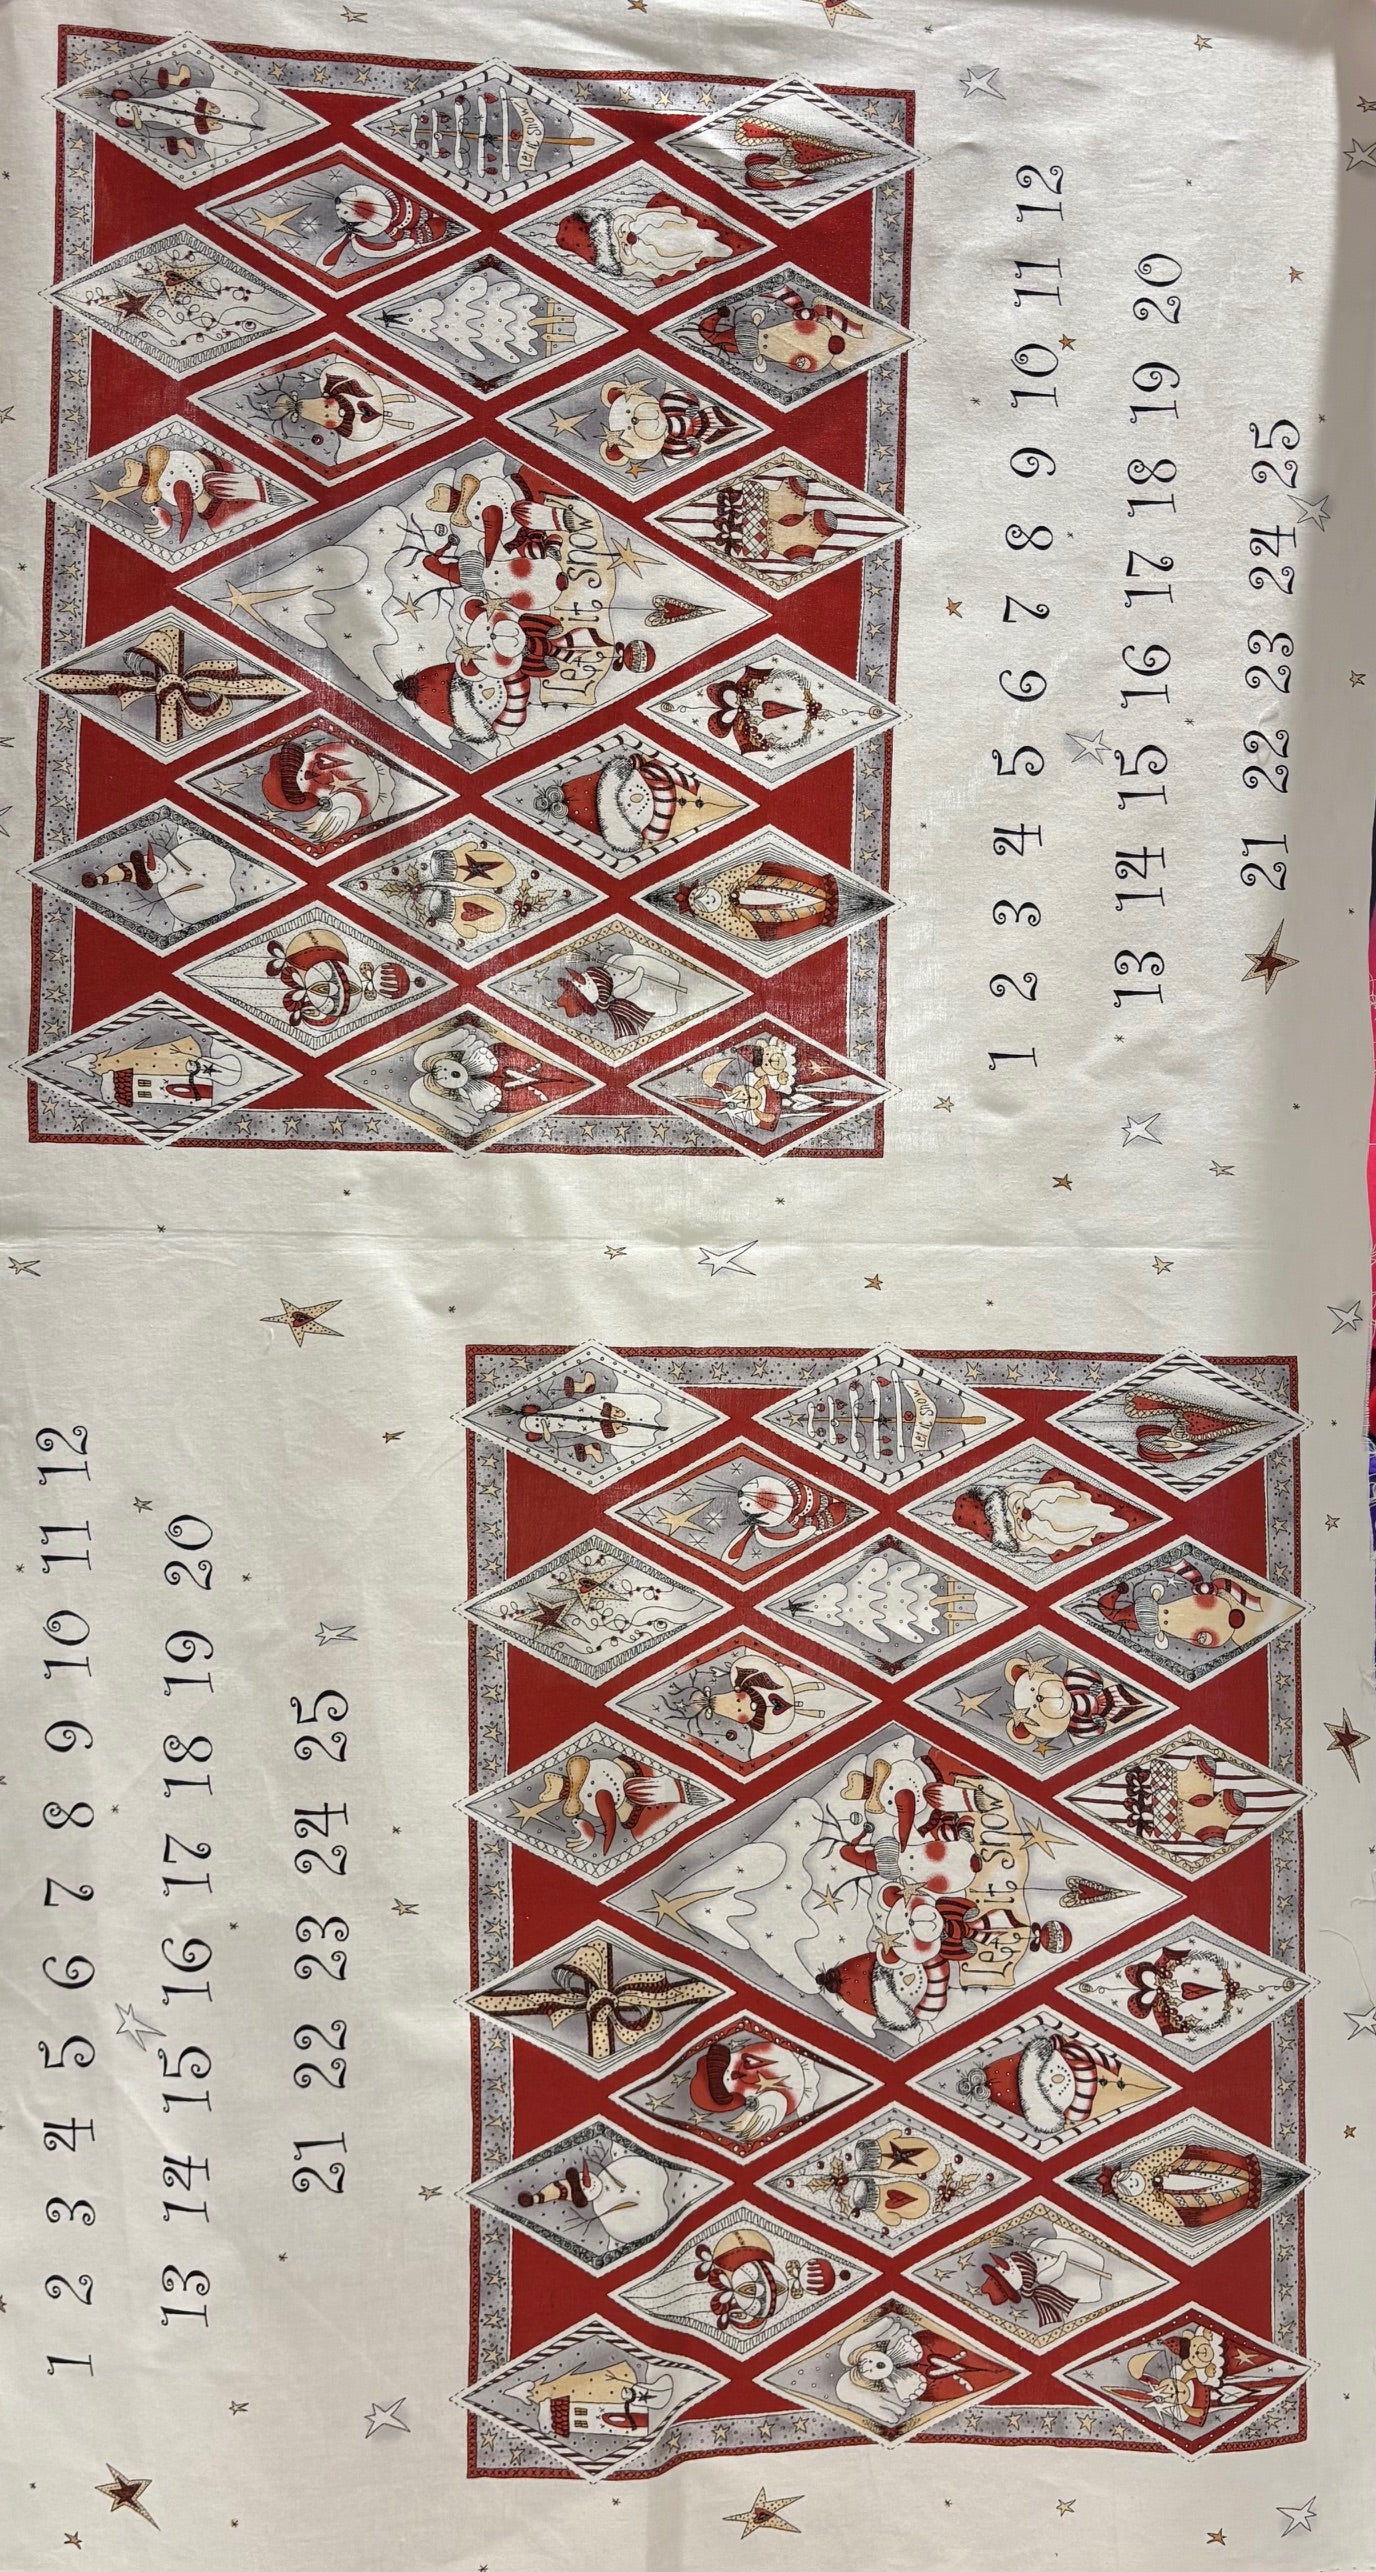 Let it Snow
Let it snow!
1 2 3 4 5 6 7 8 9 10 11 12
13 14 15 16 17 18 19 20
21 22 23 24 25
1 2 3 4 5 6 7 8 9 10 11 12
13 14 15 16 17 18 19 20
21 22 23 24 25
Let it Snow
Let it snow!